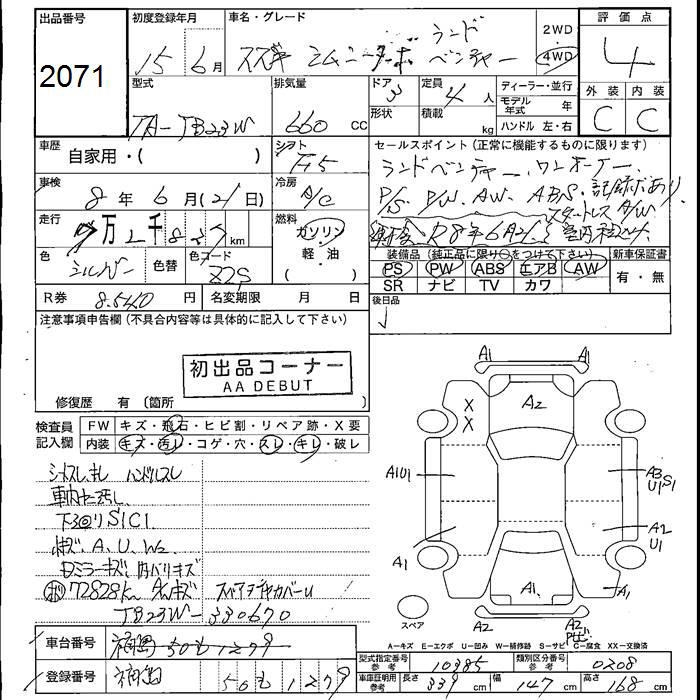 出品番号
2071
初度登録年月
15年6月
車名・グレード
スズキ ジムニーターボ ランドベンチャー
2WD
4WD
評価点
4
外装 内装
C C
型式
TA-JB23W
排気量
660 cc
ドア 3
形状
定員 4人
積載 kg
ディーラー・並行
モデル年式 年
ハンドル 左・右
車歴
自家用・( )
シフト
F5
車検
8年6月(21日)
冷房
A/C
セールスポイント(正常に機能するものに限ります)
ランドベンチャー、ワンオーナー
P/S P/W AW ABS 記録簿あり
スタットレスA/W
走行
7万2千827km
燃料
ガソリン
軽・油
色
シルバー
色替
色コード
Z2S
装備品(純正品に限り○をつけて下さい)
PS PW ABS エアB AW
SR ナビ TV カワ
新車保証書
有・無
R券 8,540円
名変期限 月 日
後日品
注意事項申告欄(不具合内容等は具体的に記入して下さい)
初出品コーナー
AA DEBUT
修復歴 有(箇所
検査員記入欄
FW キズ・飛石・ヒビ割・リペア跡・X要
内装 キズ・汚レ・コゲ・穴・スレ・キレ・破レ
シートスレ キレ ハンドルスレ
下回りS1C1
A、U、W2
72828km
スペアタイヤカバーU
JB23W-330670
車台番号
福島 50も1279
登録番号
福島 50も1279
A1 A1
A2
X
X
A1U1
A3
U1S1
A1
A2
U1
A1
A1
スペア
A2
A2
A=キズ E=エクボ U=凹み W=補修跡 S=サビ C=腐食 XX=交換済
型式指定番号 参考 10385
類別区分番号 参考 0208
車庫証明用 参考
長さ 339 cm
幅 147 cm
高さ 168 cm